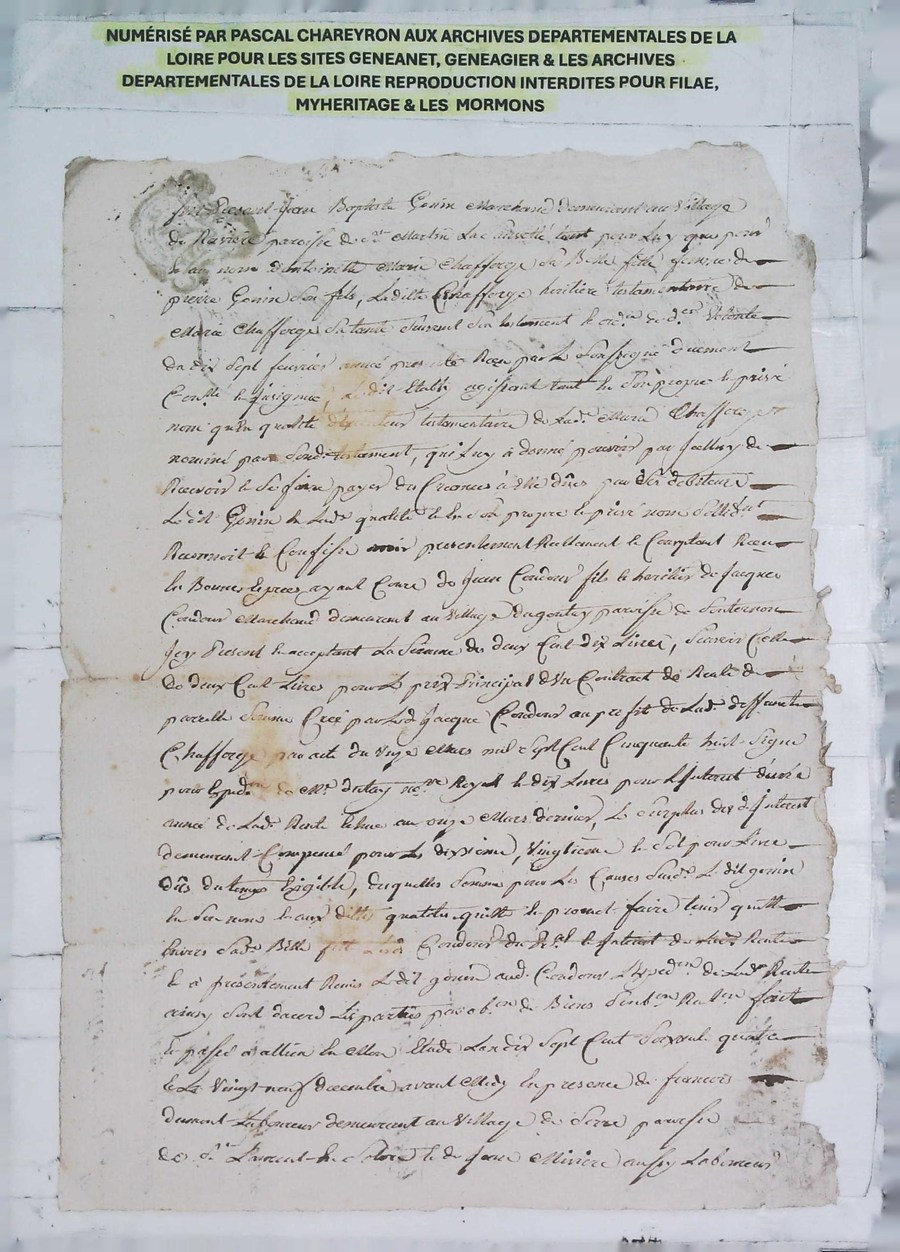 NUMÉRISÉ PAR PASCAL CHAREYRON AUX ARCHIVES DEPARTEMENTALES DE LA
LOIRE POUR LES SITES GENEANET, GENEAGIER & LES ARCHIVES
DEPARTEMENTALES DE LA LOIRE REPRODUCTION INTERDITES POUR FILAE,
MYHERITAGE & LES MORMONS
fut Present Jean Baptiste Gonin Marchand demeurant au Village
de paroisse de St Martin La tant pour Luy que pour
et au nom d'antoinette Marie Chafforge sa Belle fille femme de
pierre Gonin son fils, Ladite Chafforge heritiere testamentaire de
Marie Chafforge sa tante suivant son testament de
du dix Sept fevrier année presente Receu par Le Soussigné duement
Conllé et Insignué, Ledit agissant tant de Son propre et privé
nom qu'en qualité testamentaire de Lade Marie Chafforge
nommé par Sondt testament, qui Luy a donné pouvoir par Icelluy de
Recevoir et Se faire payer des Creances à elle dües par Ses debiteurs
Ledit Gonin de Lade qualité et en Son propre et privé nom
Reconnoit et Confesse avoir presentement Reellement et Comptant Receu
En Bonnes Especes ayant Cours de Jean Condour fils et heritier de Jacques
Condour Marchand demeurant au Village Dugoutay paroisse de
Icy Present et acceptant La Somme de deux Cent dix Livres, Scavoir Celle
de deux Cent Livre pour Le prix Principal d'Un Contract de Rente de
pareille Somme Creé par Led Jacque Condour au profit de Lade deffunte
Chafforge par acte du onze Mars mil Sept Cent Cinquante huit Signé
pour Expedon de Me dulay nore Royal et dix Livres pour L'Interet d'une
année de Lade Rente Echue au onze Mars dernier, Le Surplus des d Interet
demeurant Compensé pour Les dixieme, Vingtieme et Sol pour Livre
dûs du temps Exigible, desquelles Somme pour Les Causes Susd Ledit gonin
En Son nom et aux dittes qualités quitte et promet faire tenir quitte
Envers Sade Belle Condour du et Interest de Rente
et a presentement Remis Ledit gonin aud Condour L'Expedon de Lade Rente
ainsy Sont dacord Les parties par obon de Biens
et passé a allieu En Mon Etude Lan dix Sept Cent Soixante quatre
et Le Vingt neuf decembre avant Midy En presence de francois
dumont Laboureur demeurant au Village de Serre paroisse
de St Laurent et de Jean Miviere aussy Laboureur